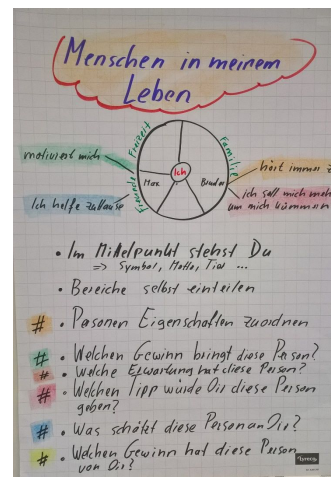 Menschen in meinem
Leben
Freizeit
Familie
Freunde
Ich
Max
Bruder
motiviert mich
Ich helfe zuhause
hört immer z
ich soll mich meh
um mich kümmern
• Im Mittelpunkt stehst Du
=> Symbol, Motto, Tier ...
• Bereiche selbst einteilen
# • Personen Eigenschaften zuordnen
# • Welchen Gewinn bringt diese Person?
# • Welche Erwartung hat diese Person?
# • Welchen Tipp würde Dir diese Person
geben?
# • Was schätzt diese Person an Dir?
# • Welchen Gewinn hat diese Person
von Dir?